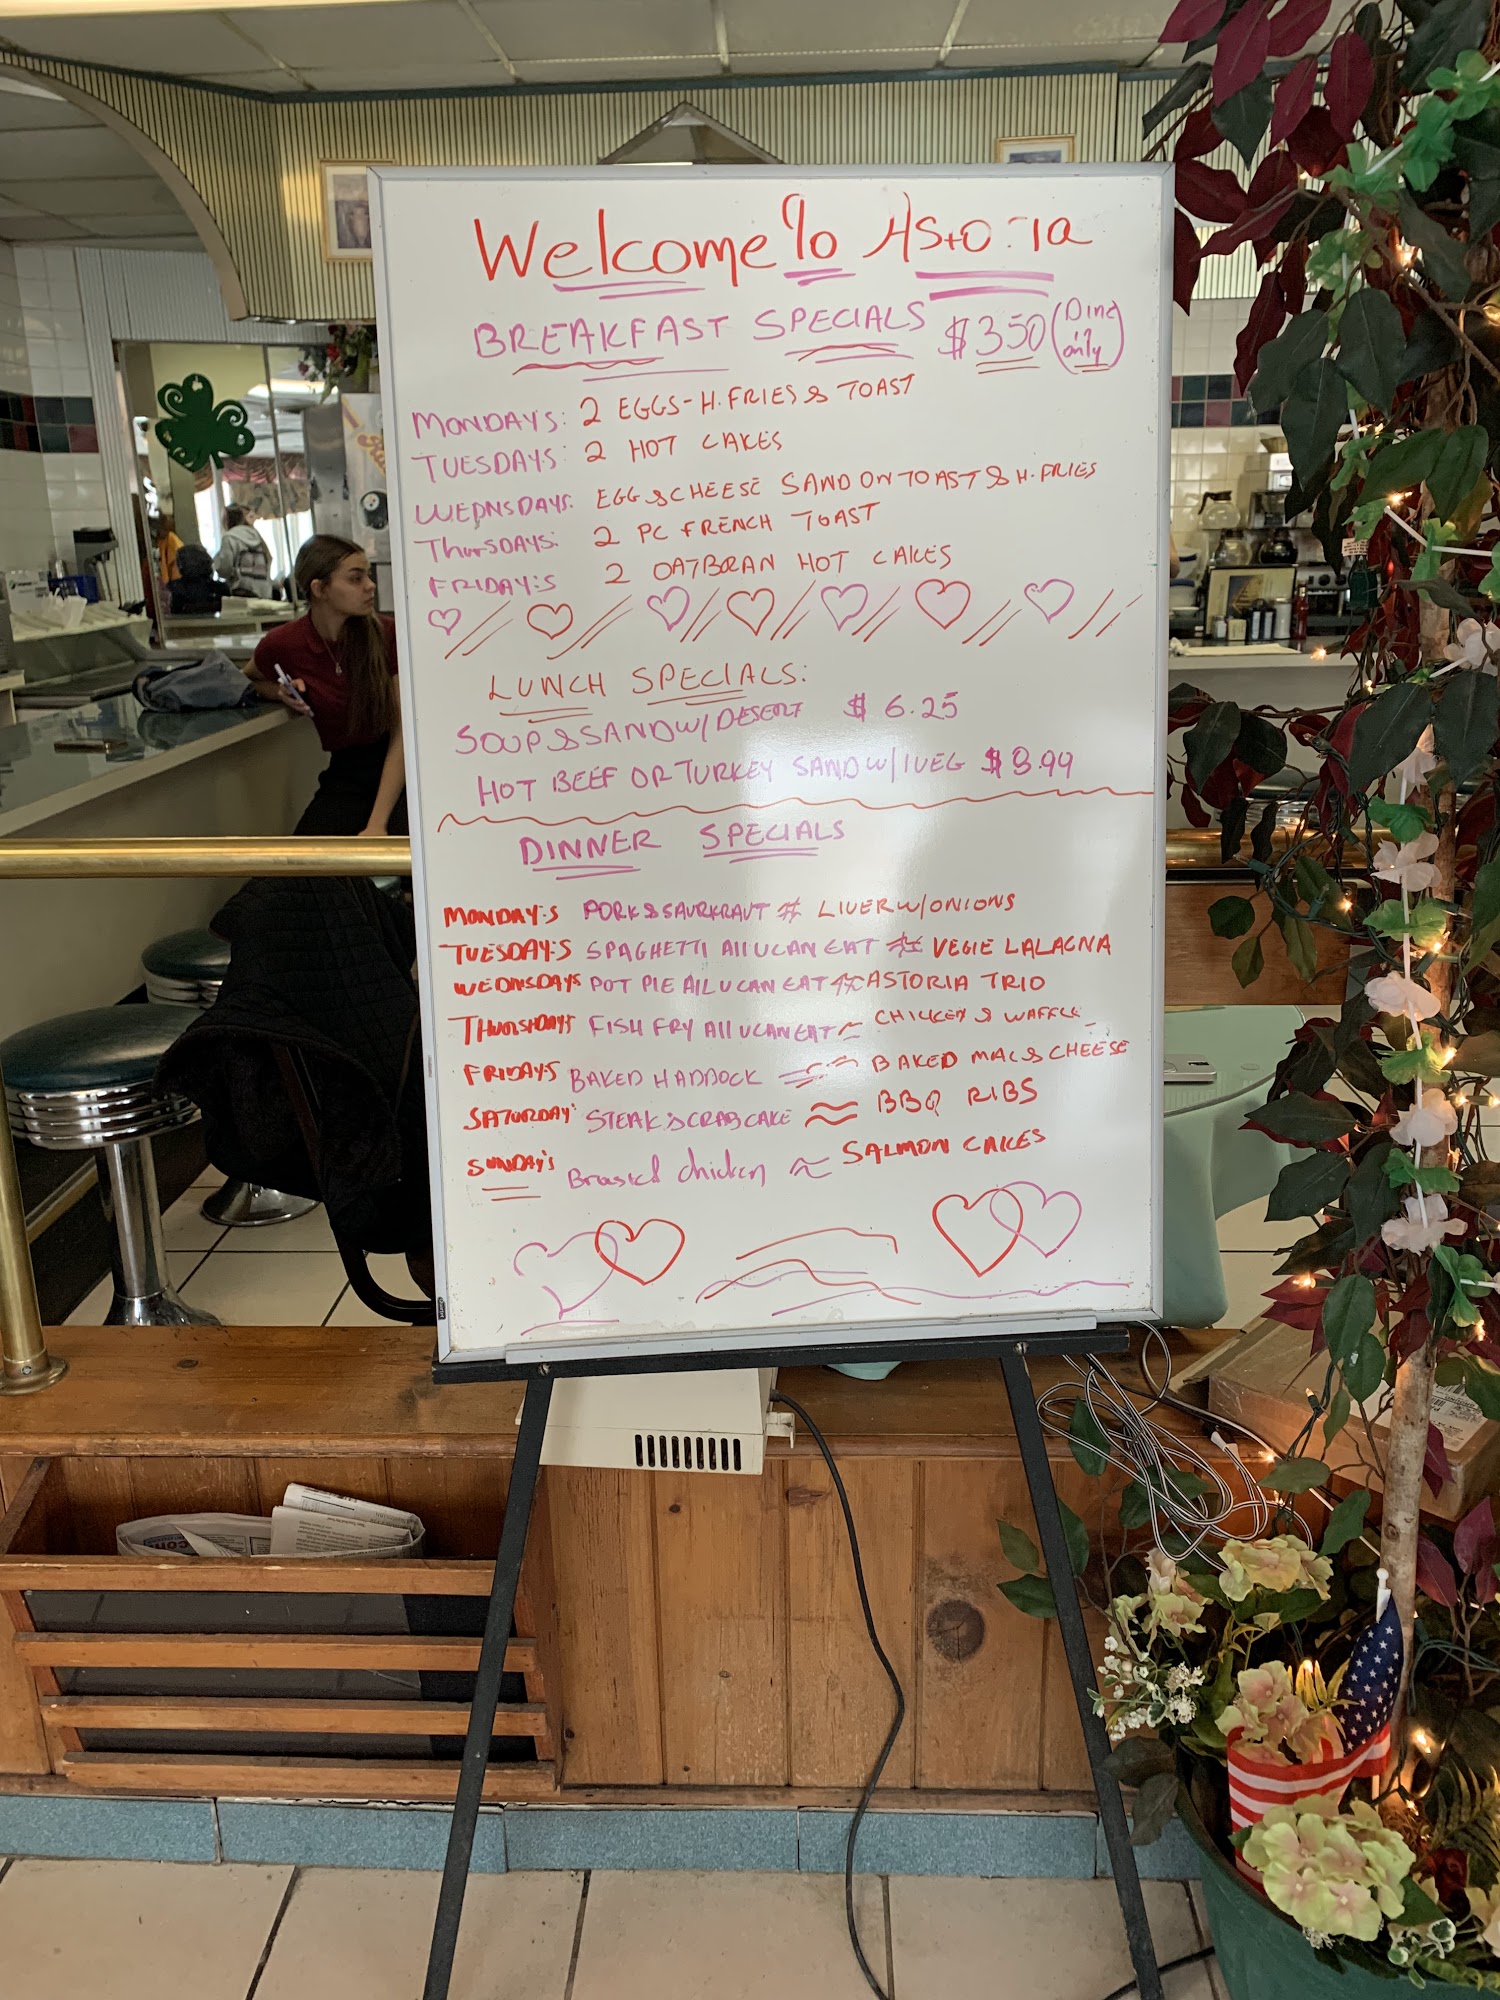 Welcome to Astoria
BREAKFAST SPECIALS $350 (Dine in only)
MONDAYS: 2 EGGS-H.FRIES & TOAST
TUESDAYS: 2 HOT CAKES
WEDNSDAYS: EGG & CHEESE SAND ON TOAST & H.FRIES
ThursDAYS: 2 PC FRENCH TOAST
FRIDAY:S 2 OATBRAN HOT CAKES
LUNCH SPECIALS:
SOUP & SAND W/DESERT $ 6.25
HOT BEEF OR TURKEY SAND W/1VEG $ 8.99
DINNER SPECIALS
MONDAY:S PORK & SAURKRAUT # LIVER W/ONIONS
TUESDAY:S SPAGHETTI All U CAN EAT # VEGIE LALAGNA
WEDNSDAYS POT PIE All U CAN EAT # ASTORIA TRIO
THURSDAYS FISH FRY All U CAN EAT ~ CHICKEN & WAFFLE
FRIDAYS BAKED HADDOCK BAKED MAC & CHEESE
SATURDAY' STEAK & CRAB CAKE ≈ BBQ RIBS
SUNDAY'S Broasted chicken ≈ SALMON CAKES